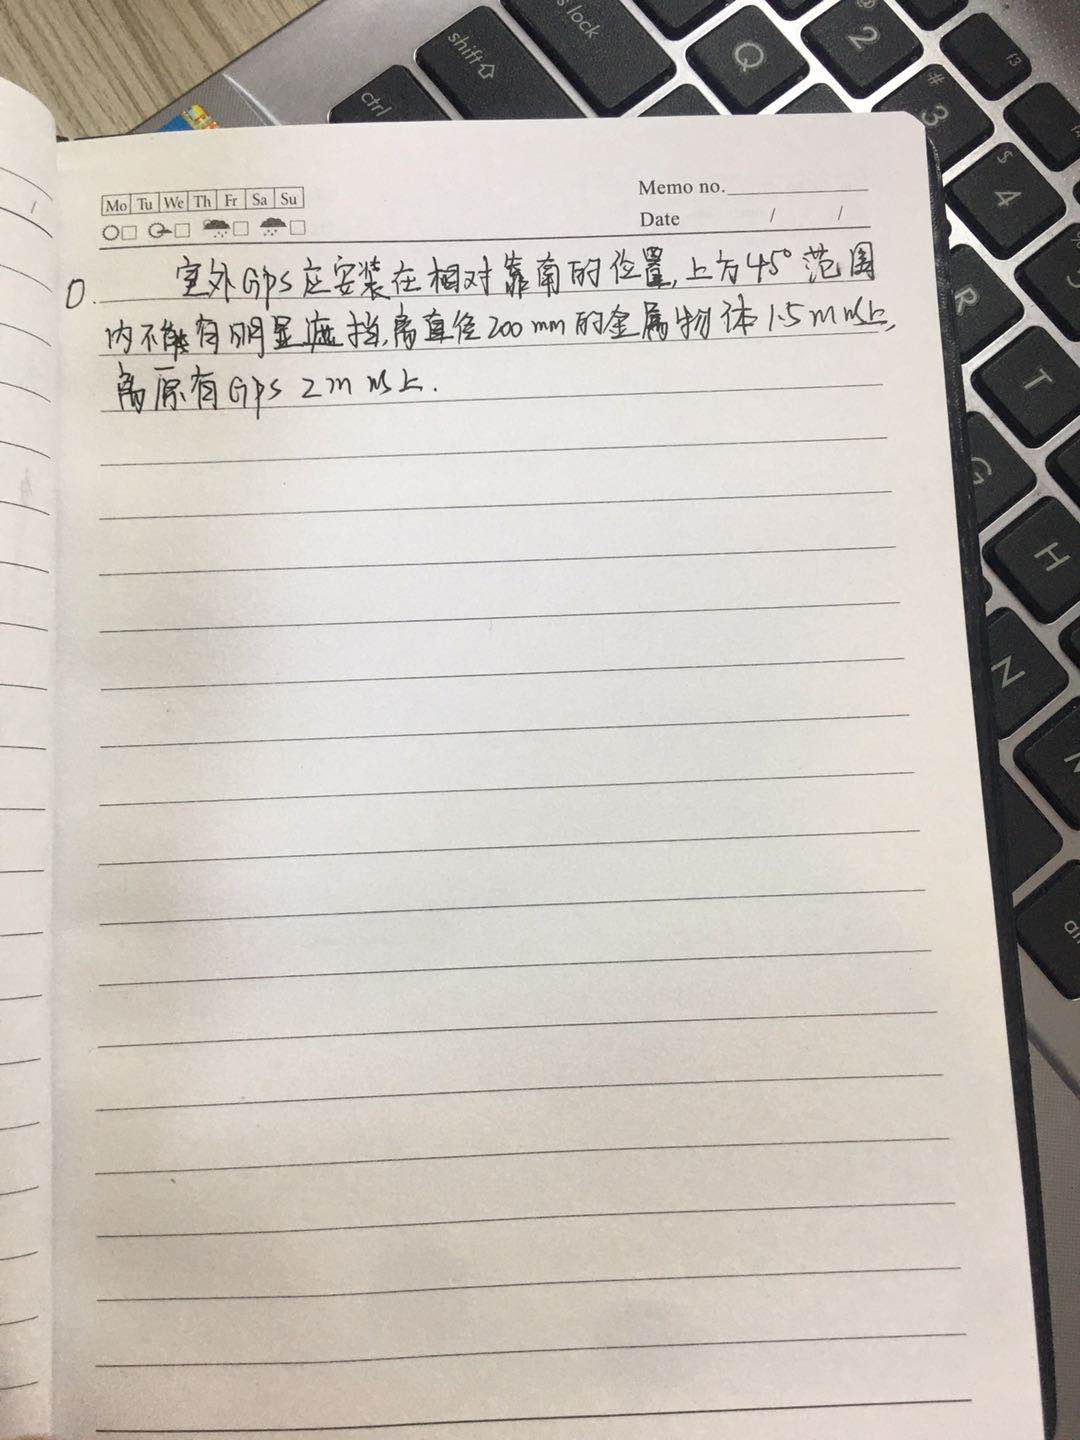 caps lock
shift
ctrl
Q
2
#
3
f3
$
4
R
T
G
H
N
Mo Tu We Th Fr Sa Su
Memo no.
Date / /
0. 室外GPS应安装在相对靠南的位置,上方45°范围
内不能有明显遮挡,离直径200mm的金属物体1.5m以上,
离原有GPS 2m以上.